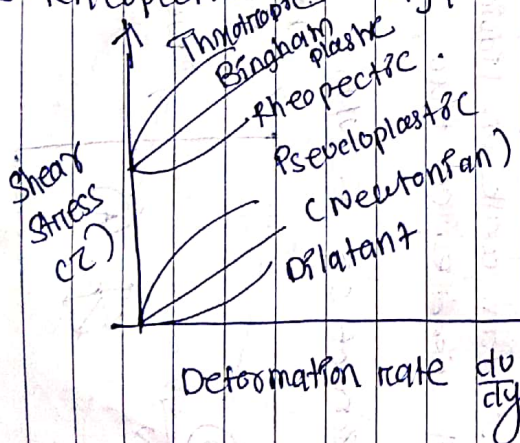 Thixotropic
Bingham
plastic
Rheopectic.
Pseudoplastic
(Newtonian)
Dilatant
Shear
Stress
(τ)
Deformation rate du
dy